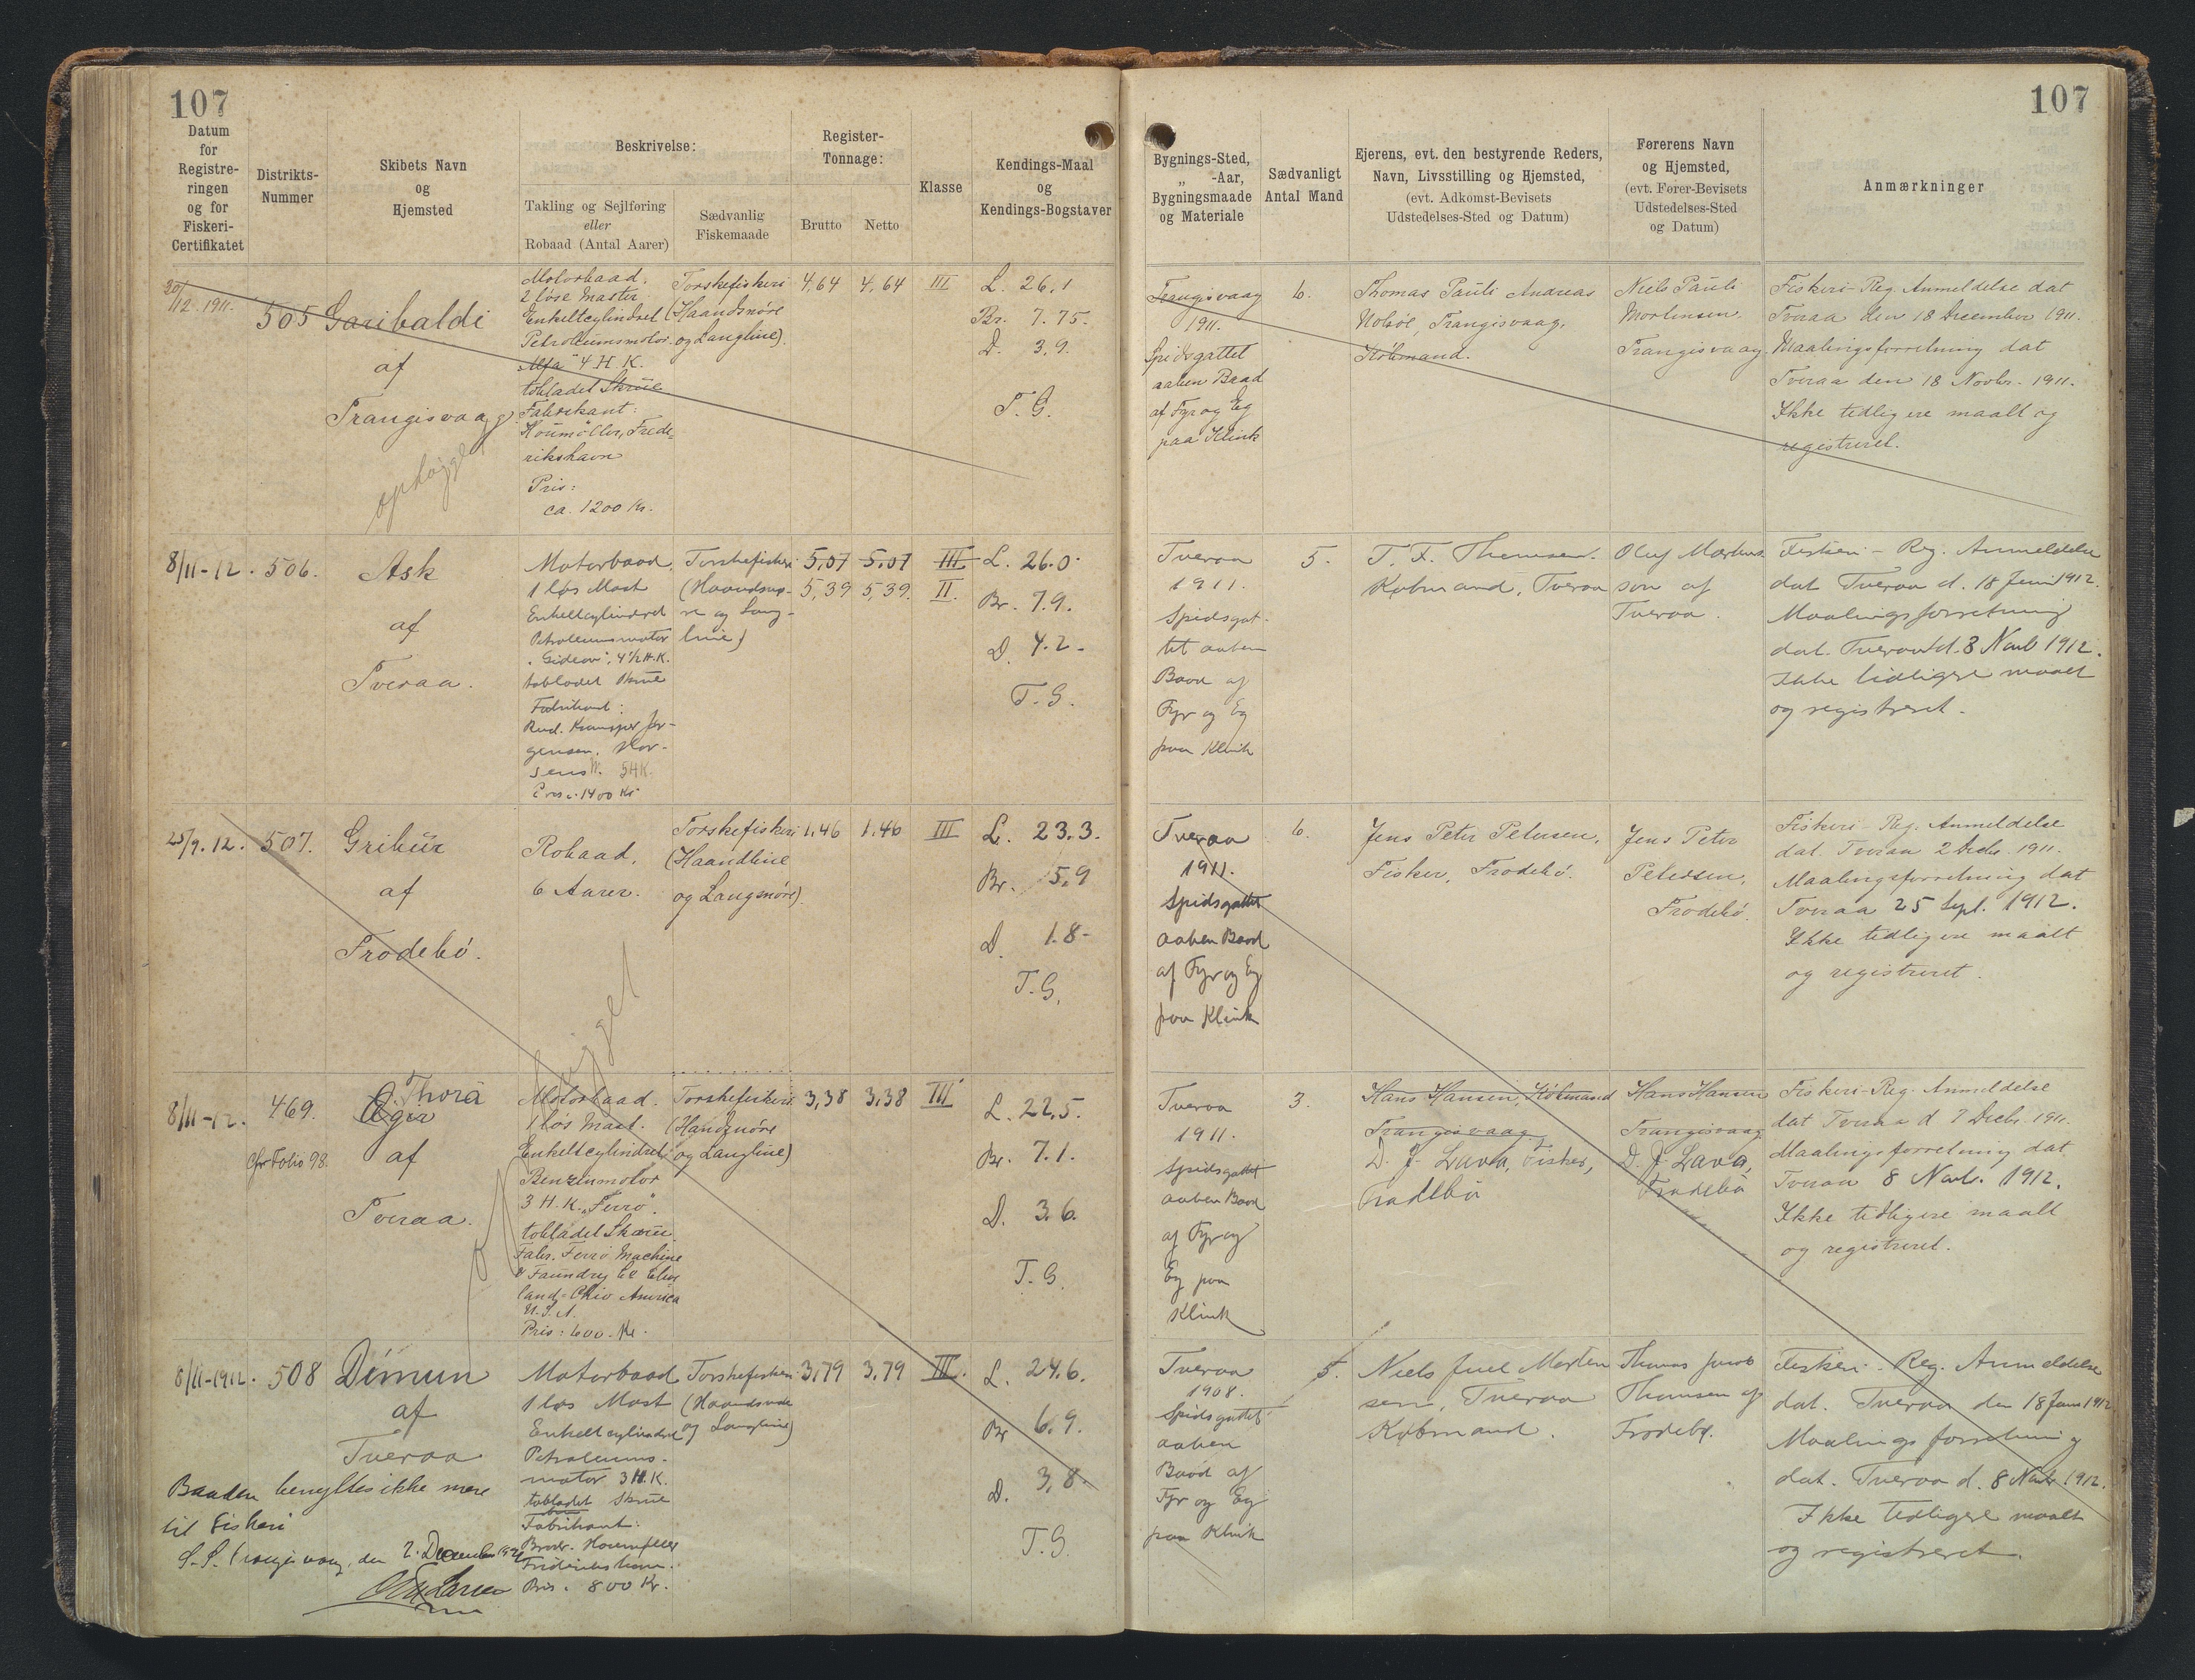 107
107
Datum
for
Registre-
ringen
og for
Fiskeri-
Certifikatet
Distrikts-
Nummer
Skibets Navn
og
Hjemsted
Beskrivelse:
Takling og Sejlføring
eller
Robaad (Antal Aarer)
Sædvanlig
Fiskemaade
Register-
Tonnage:
Brutto
Netto
Klasse
Kendings-Maal
og
Kendings-Bogstaver
Bygnings-Sted,
„ -Aar,
Bygningsmaade
og Materiale
Sædvanligt
Antal Mand
Ejerens, evt. den bestyrende Reders,
Navn, Livsstilling og Hjemsted,
(evt. Adkomst-Bevisets
Udstedelses-Sted og Datum)
Førerens Navn
og Hjemsted,
(evt. Fører-Bevisets
Udstedelses-Sted
og Datum)
Anmærkninger
20/12. 1911.
505
Garibaldi
af
Trangisvaag
ophugget
Motorbaad.
2 løse Master.
Enkeltcylindret
Petroleumsmotor
"Alfa" 4 H.K.
tobladet Skrue
Fabrikant:
Houmøller, Frede-
rikshavn
Pris:
ca. 1200 Kr.
Torskefiskeri
(Haandsnøre
og Langline).
4,64
4,64
III
L. 26,1
Br. 7.75.
D. 3,9.
T. G.
Trangisvaag
1911.
Spidsgattet
aaben Baad
af Fyr og Eg
paa Klink
6.
Thomas Pauli Andreas
Holsøe, Trangisvaag,
Købmand.
Niels Pauli
Mortensen.
Trangisvaag
Fiskeri-Reg. Anmeldelse dat
Tveraa den 18 December 1911.
Maalingsforretning dat
Tveraa den 18 Novbr. 1911.
Ikke tidligere maalt og
registreret.
8/11-12.
506.
Ask
af
Tveraa.
Motorbaad
1 løs Mast
Enkeltcylindret
Petroleumsmotor
"Gideon", 4½ H.K.
tobladet Skrue
Fabrikant:
Rud. Kramper Jør-
gensen, Hor-
sens. 5HK.
Pris: 1400 Kr
Torskefiskeri
(Haandsnø-
re og Lang-
line)
5,07 5,07 III
5,39 5,39. II.
L. 26.0.
Br. 7.9.
D. 4.2-
T. G.
Tveraa
1911.
Spidsgat-
tet aaben
Baad af
Fyr og Eg
paa Klink
5.
T. F. Thomsen.
Købmand, Tveraa
Oluf Mortens
son af
Tveraa.
Fiskeri-Reg. Anmeldelse
dat Tveraa d. 18 Juni 1912.
Maalingsforretning
dat. Tveraa d. 8 Novb 1912.
Ikke tidligere maalt
og registreret.
25/9.12.
507.
Gribur
af
Frodebø.
Robaad,
6 Aarer.
Torskefiskeri
(Haandline
og Langsnøre).
1,46
1,46
III
L. 23.3.
Br. 5,9
D. 1.8-
T.G.
Tveraa
1911.
Spidsgattet
aaben Baad
af Fyr og Eg
paa Klink
6.
Jens Peter Petersen,
Fisker, Frodebø.
Jens Peter
Petersen,
Frodebø.
Fiskeri-Reg. Anmeldelse
dat. Tveraa 2 Decbr. 1911.
Maalingsforretning dat
Tveraa 25 Sept. 1912.
Ikke tidligere maalt
og registreret.
ophugget
8/11-12.
469.
cfr Folio 98.
Thora
Ægir
af
Tveraa.
Motorbaad.
1 løs Mast.
Enkeltcylindret
Benzinmotor
3 H.K. "Ferro".
tobladet Skrue.
Fabr. Ferro Machine
& Foundry Co Cleve
land-Ohio America
U.S.A.
Pris: 600. Kr.
Torskefiskeri
(Handsnøre
og Langline)
3,38
3,38
III
L. 22,5.
Br. 7.1.
D. 3.6.
T. G.
Tveraa
1911.
Spidsgattet
aaben Baad
af Fyr og
Eg paa
Klink
3.
Hans Hansen, Købmand
Trangisvaag
D. J. Lava, Fisker,
Frodebø
Hans Hansen
Trangisvaag
D. J. Lava,
Frodebø
Fiskeri-Reg. Anmeldelse
dat Tveraa d 7 Decbr. 1911.
Maalingsforretning dat
Tveraa 8 Novb. 1912.
Ikke tidligere maalt
og registreret.
8/11-1912.
508
Dimun
af
Tveraa
Baaden benyttes ikke mere
til Fiskeri
Motorbaad
1 løs Mast
Enkeltcylindret
Petroleums-
motor 3 H.K.
tobladet Skrue
Fabrikant:
Brødr. Houmøller
Frederikshavn.
Pris. 800 Kr.
Torskefiskeri
(Haandsnøre
og Langline)
3,79
3,79
III.
L. 24.6.
Br 6.9.
D. 3,8.
T.G.
Tveraa
1908.
Spidsgattet
aaben
Baad af
Fyr og Eg
paa Klink
5.
Niels Juel Morten
sen, Tveraa
Købmand.
Thomas Jacob
Thomsen af
Frodebø.
Fiskeri-Reg. Anmeldelse
dat. Tveraa den 18 Juni 1912
Maalingsforretning
dat. Tveraa d. 8 Novbr. 1912.
Ikke tidligere maalt
og registreret.